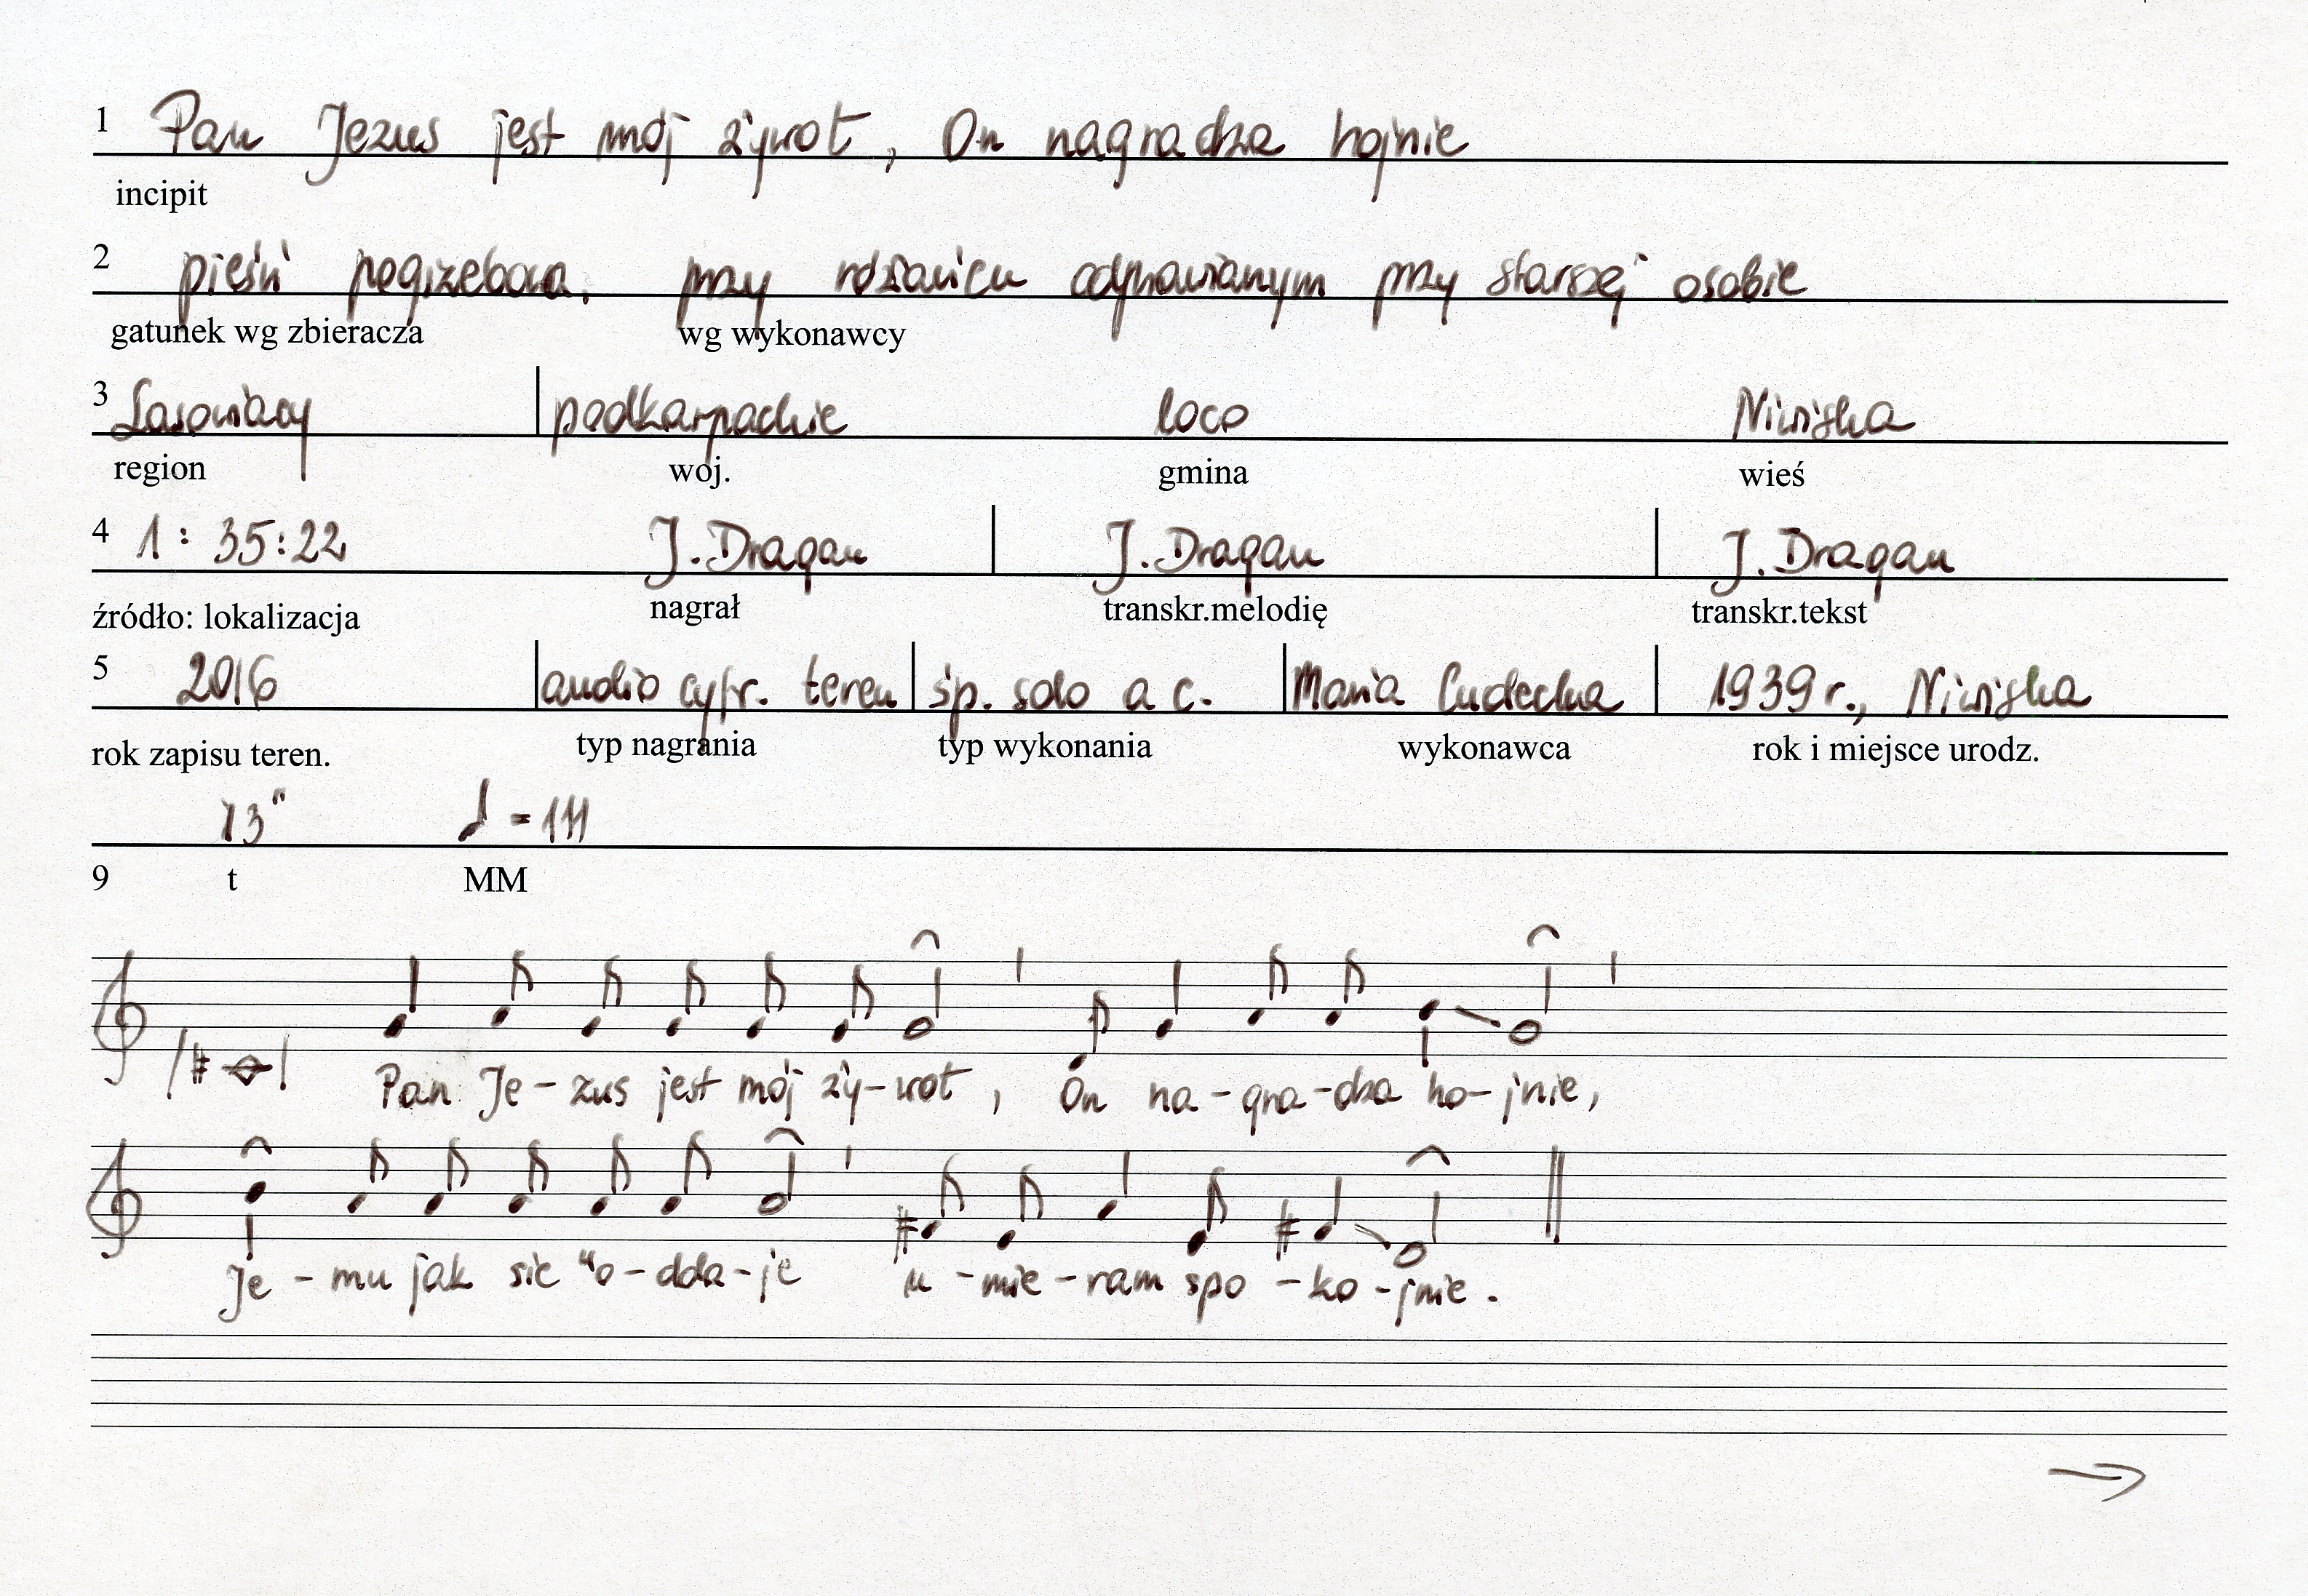 1 Pan Jezus jest mój żywot, On nagradza hojnie
incipit
2 pieśń pogrzebowa, przy różańcu odprawianym przy starszej osobie
gatunek wg zbieracza wg wykonawcy
3 Lasowiacy podkarpackie loco Niwiska
region woj. gmina wieś
4 1:35:22 J. Dragan J. Dragan J. Dragan
źródło: lokalizacja nagrał transkr.melodię transkr.tekst
5 2016 audio cyfr. teren śp. solo a c. Maria Cudecka 1939 r., Niwiska
rok zapisu teren. typ nagrania typ wykonania wykonawca rok i miejsce urodz.
13" = 111
9 t MM
Pan Je-zus jest mój ży-wot, On na-gra-dza ho-jnie,
Je-mu jak sie "o-dda-je u-mie-ram spo-ko-jnie.